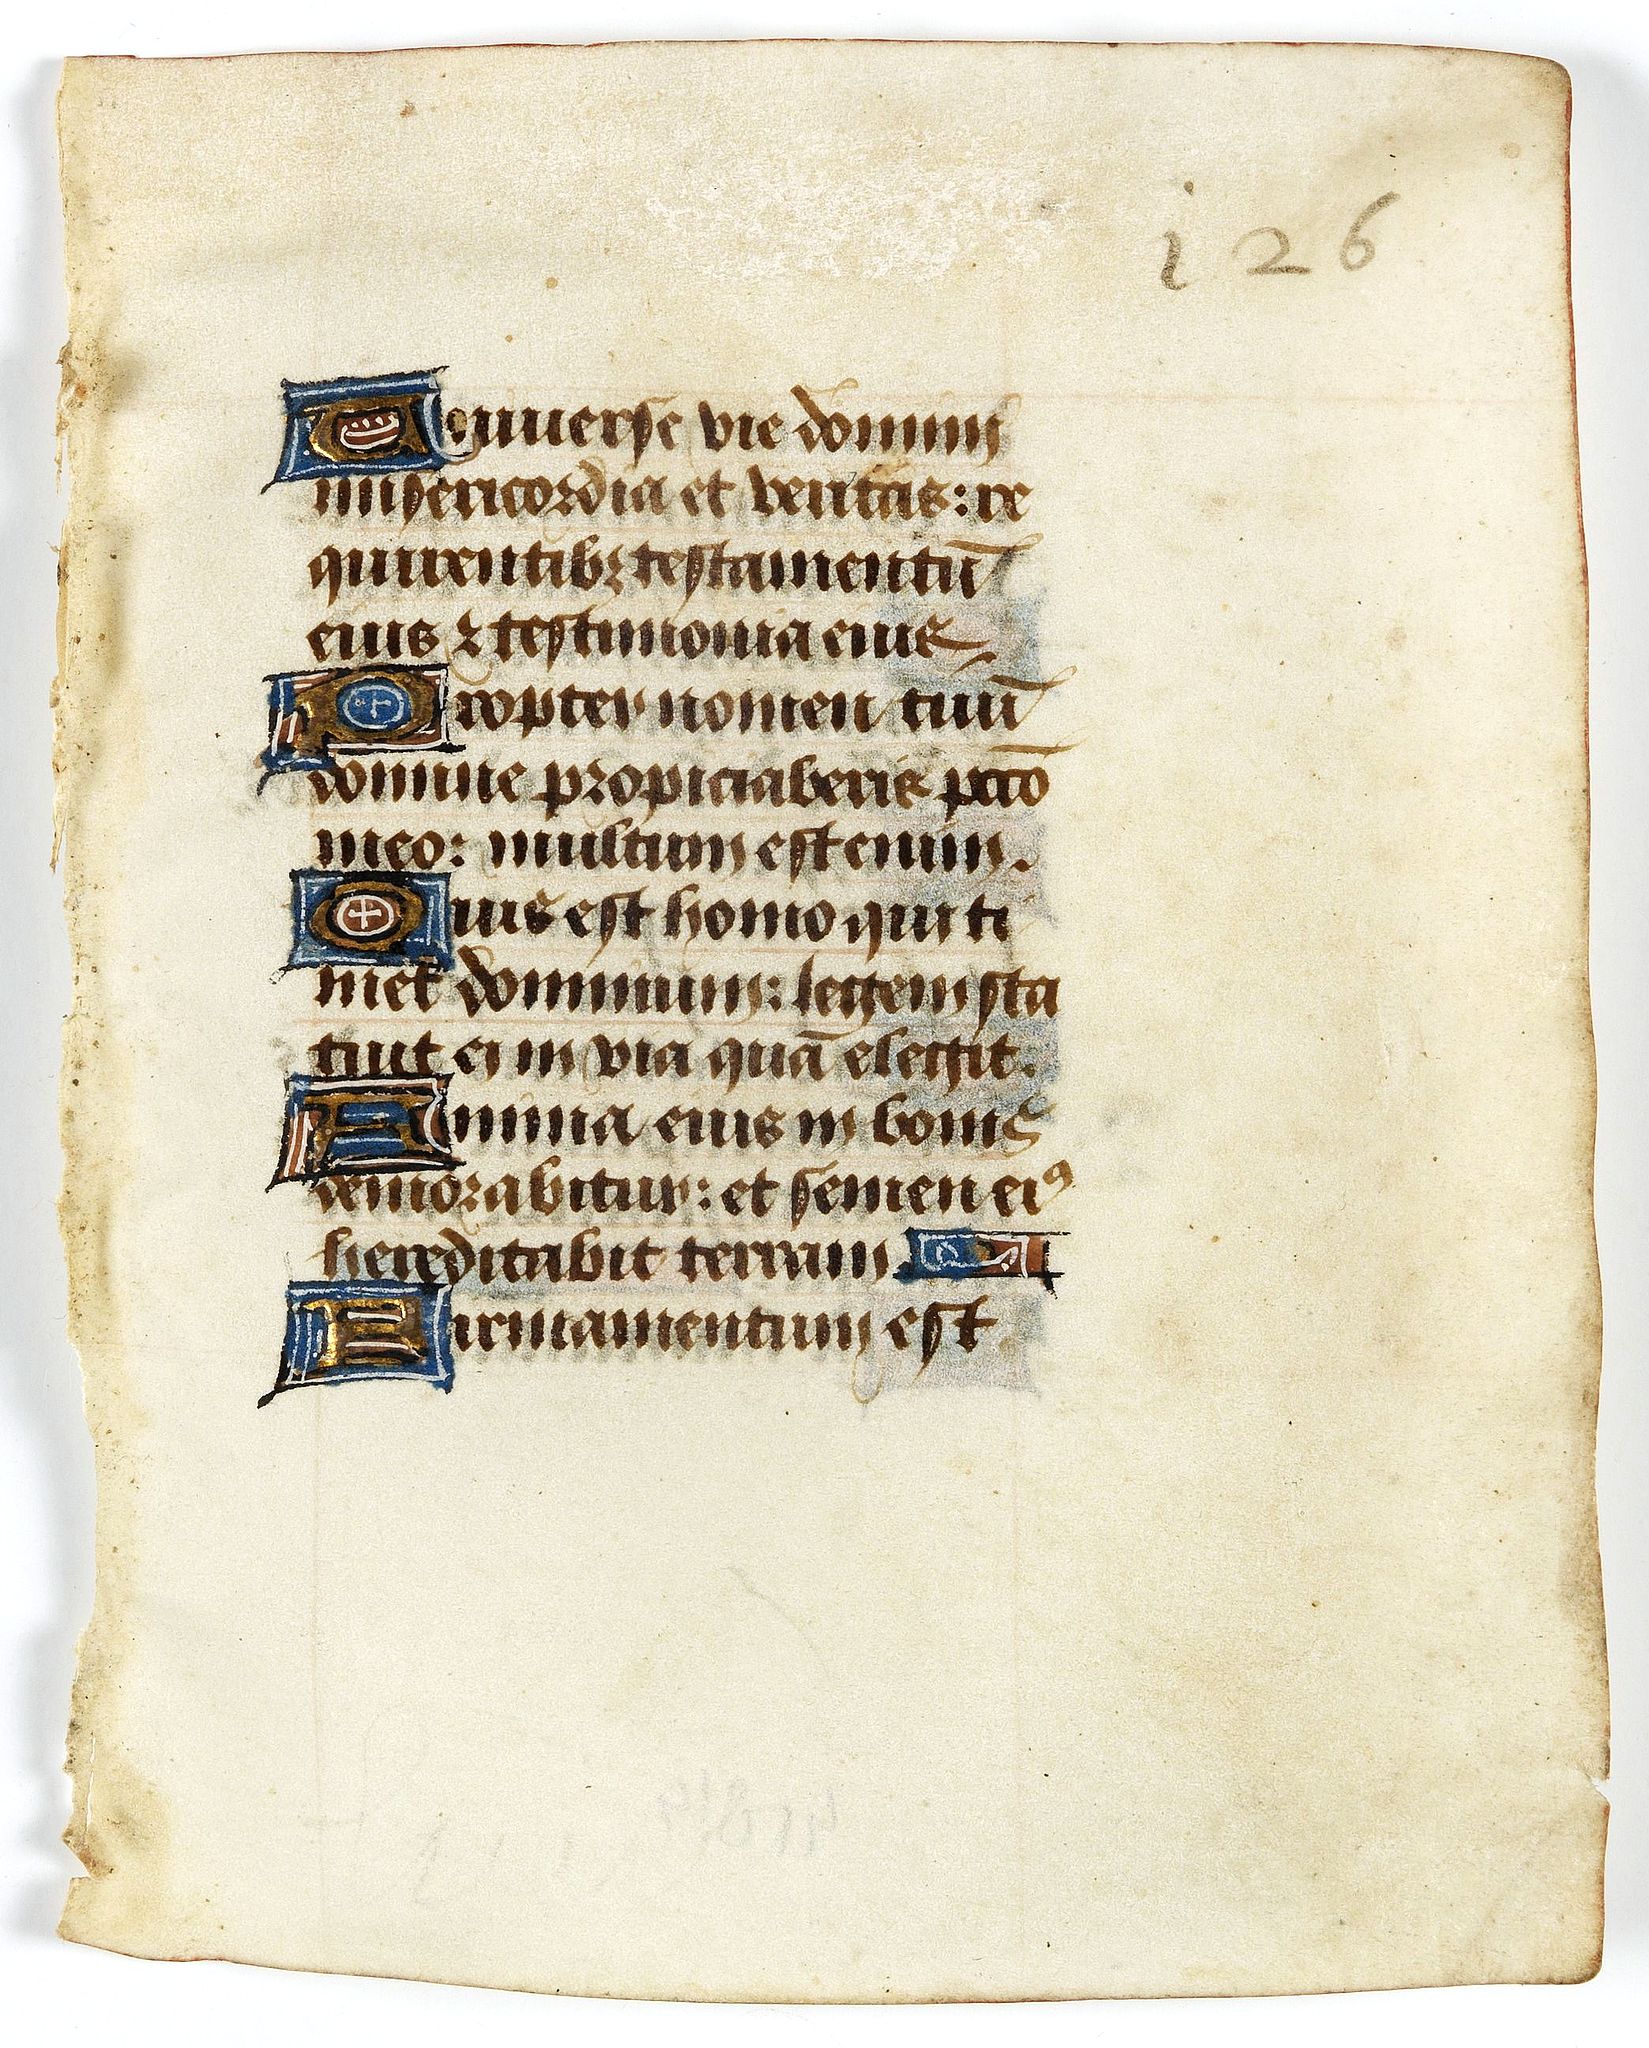 i26
Uniuerse vie domini
misericordia et veritas: re
quirentibꝫ testamentū
eius ⁊ testimonia eius
Propter nomen tuū
domine propiciaberis pctō
meo: multum est enim.
Quis est homo qui ti
met dominum: legem sta
tuit ei in via quā elegit.
Anima eius in bonis
demorabitur: et semen eiꝰ
hereditabit terram.
Firmamentum est